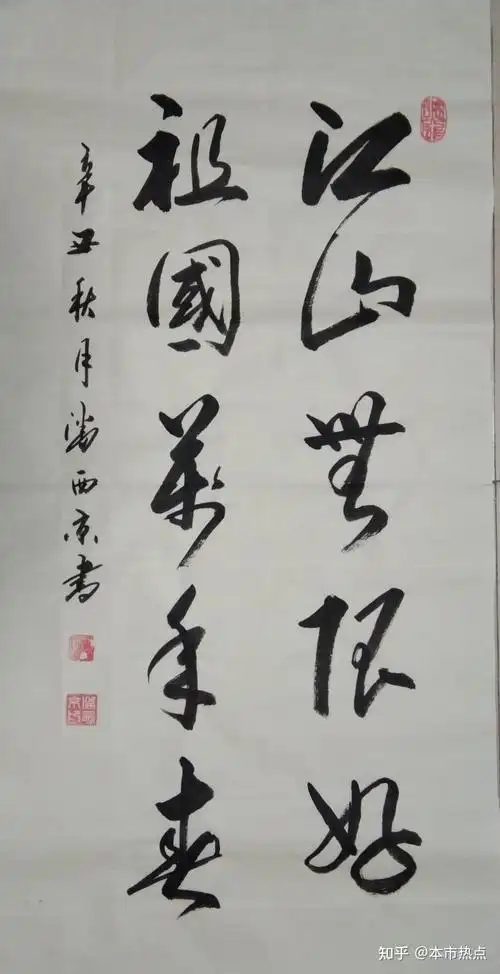 江山無限好
祖國萬年春
辛丑秋月潘西京書
知乎 @本市热点